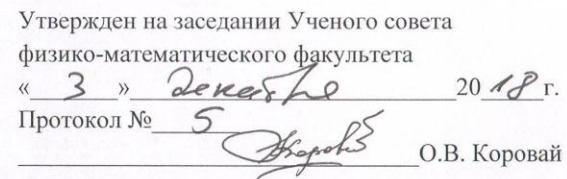 Утвержден на заседании Ученого совета
физико-математического факультета
« 3 » декабря 2018 г.
Протокол № 5
О.В. Коровай